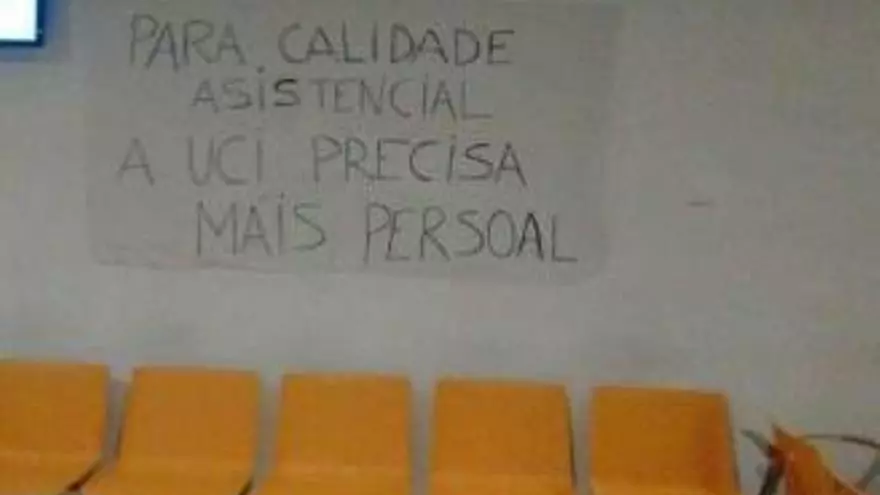 PARA CALIDADE
ASISTENCIAL
A UCI PRECISA
MAIS PERSOAL